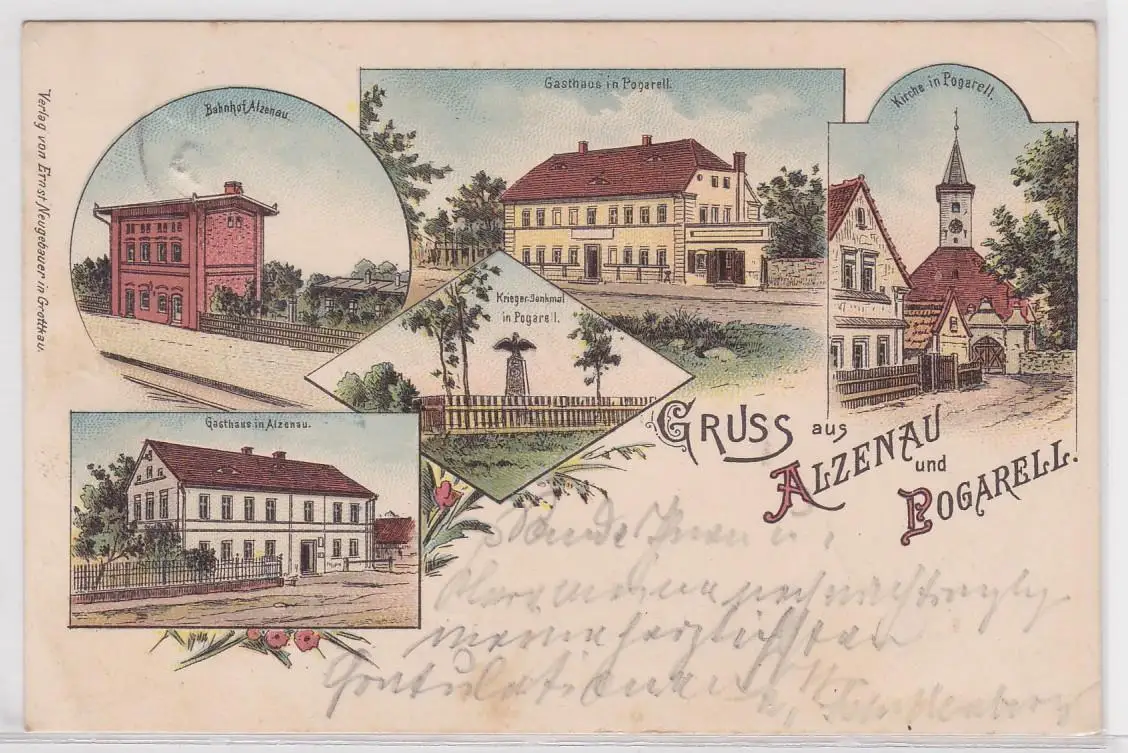 Verlag von Ernst Neugebauer in Grottkau.
Bahnhof Alzenau.
Gasthaus in Pogarell.
Kirche in Pogarell.
Krieger-Denkmal
in Pogarell.
Gasthaus in Alzenau.
GRUSS aus
ALZENAU
und
POGARELL.
Sende Ihnen u.
nachträglich
meine herzlichsten
Gratulationen